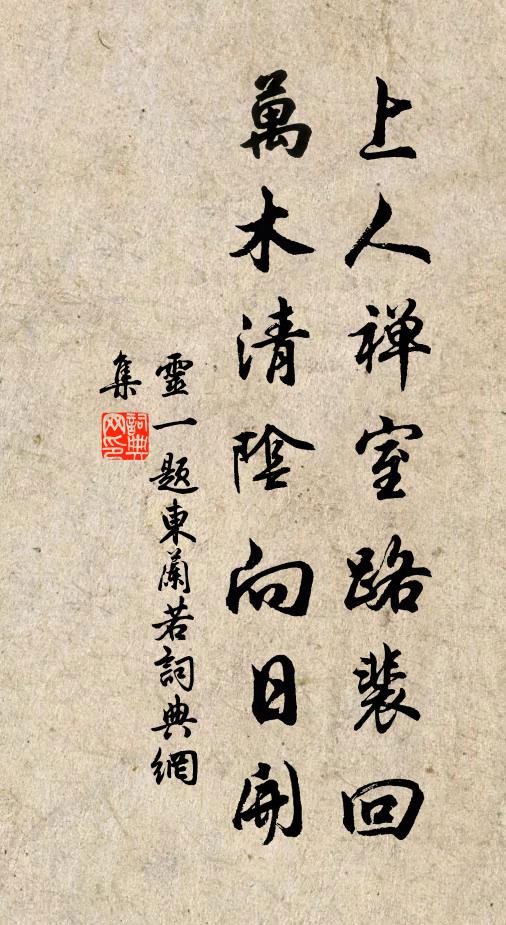 上人禅室路裴回
萬木清陰向日開
靈一題東蘭若詞典網
集
詞典网印